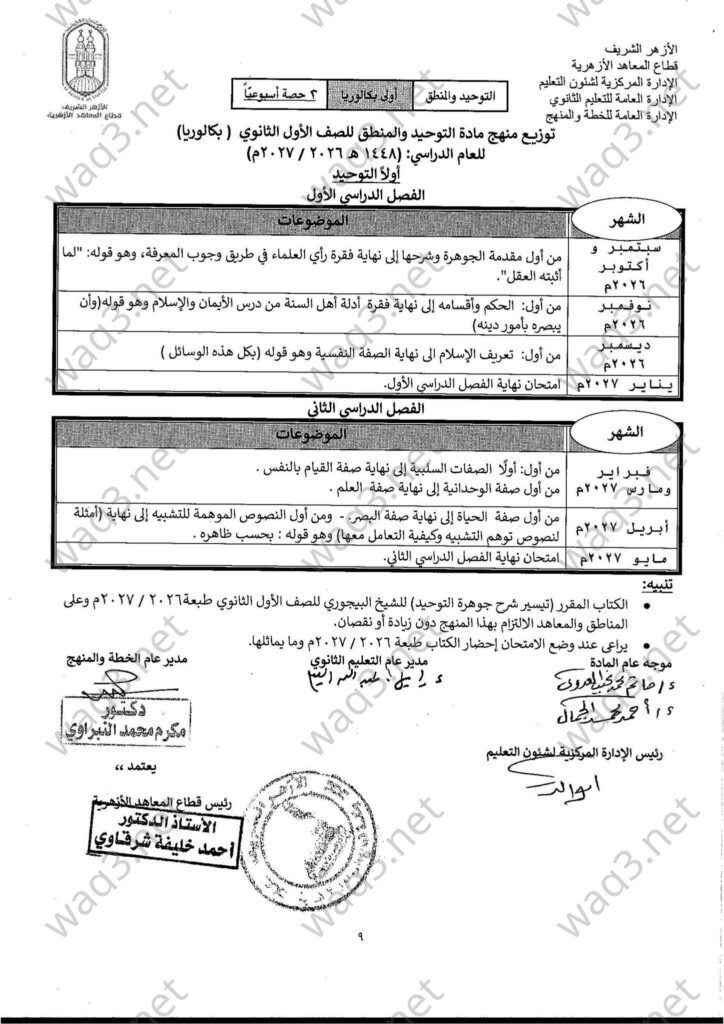 الأزهر الشريف
قطاع المعاهد الأزهرية
الإدارة المركزية لشئون التعليم
الإدارة العامة للتعليم الثانوي
الإدارة العامة للخطة والمنهج
الأزهر الشريف
قطاع المعاهد الأزهرية
التوحيد والمنطق أولى بكالوريا ٢ حصة أسبوعيًّا
توزيع منهج مادة التوحيد والمنطق للصف الأول الثانوي ( بكالوريا)
للعام الدراسي: (١٤٤٨ هـ ٢٠٢٦ / ٢٠٢٧م)
أولًا التوحيد
الفصل الدراسي الأول
الشهر الموضوعات
سبتمبر و أكتوبر ٢٠٢٦م من أول مقدمة الجوهرة وشرحها إلى نهاية فقرة رأي العلماء في طريق وجوب المعرفة، وهو قوله: "لما
أثبته العقل".
نوفمبر ٢٠٢٦م من أول: الحكم وأقسامه إلى نهاية فقرة أدلة أهل السنة من درس الأيمان والإسلام وهو قوله(وأن
يبصره بأمور دينه)
ديسمبر ٢٠٢٦م من أول: تعريف الإسلام الى نهاية الصفة النفسية وهو قوله (بكل هذه الوسائل )
يناير ٢٠٢٧م امتحان نهاية الفصل الدراسي الأول.
الفصل الدراسي الثاني
الشهر الموضوعات
فبراير ومارس ٢٠٢٧م من أول: أولًا الصفات السلبية إلى نهاية صفة القيام بالنفس .
من أول صفة الوحدانية إلى نهاية صفة العلم .
أبريل ٢٠٢٧م من أول صفة الحياة إلى نهاية صفة البصر. - ومن أول النصوص الموهمة للتشبيه إلى نهاية (أمثلة
لنصوص توهم التشبيه وكيفية التعامل معها) وهو قوله : بحسب ظاهره .
مايو ٢٠٢٧م امتحان نهاية الفصل الدراسي الثاني.
تنبيه:
• الكتاب المقرر (تيسير شرح جوهرة التوحيد) للشيخ البيجوري للصف الأول الثانوي طبعة٢٠٢٦ / ٢٠٢٧م وعلى
المناطق والمعاهد الالتزام بهذا المنهج دون زيادة أو نقصان.
• يراعى عند وضع الامتحان إحضار الكتاب طبعة ٢٠٢٦ / ٢٠٢٧م وما يماثلها.
موجه عام المادة مدير عام التعليم الثانوي مدير عام الخطة والمنهج
دكتور
مكرم محمد النبراوي
رئيس الإدارة المركزية لشئون التعليم
يعتمد ،،
رئيس قطاع المعاهد الأزهرية
الأستاذ الدكتور
أحمد خليفة شرقاوي
٩
waq3.net